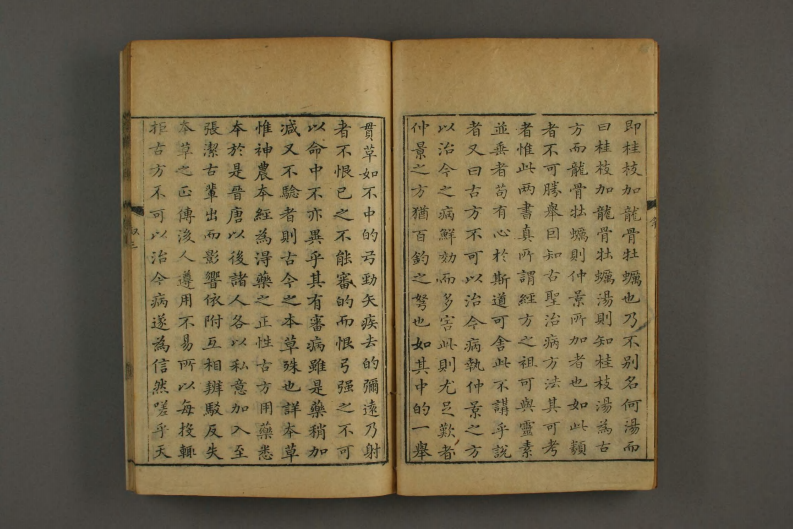 即桂枝加龍骨牡蠣也乃不别名何湯而
曰桂枝加龍骨牡蠣湯則知桂枝湯為古
方而龍骨牡蠣則仲景所加者也如此類
者不可勝舉因知古聖治病方法其可考
者惟此两書真所謂經方之祖可與靈素
並垂者苟有心於斯道可舍此不講乎說
者又曰古方不可以治今病執仲景之方
以治今之病鮮効而多害此則尤足歎者
仲景之方猶百鈞之弩也如其中的一舉
貫革如不中的弓勁矢疾去的彌遠乃射
者不恨己之不能審的而恨弓强之不可
以命中不亦異乎其有審病雖是藥稍加
减又不驗者則古今之本草殊也詳本草
惟神農本經為得藥之正性古方用藥悉
本於是晉唐以後諸人各以私意加入至
張潔古輩出而影響依附互相辨駮反失
本草之正傳後人遵用不易所以每投輙
拒古方不可以治今病遂為信然嗟乎天